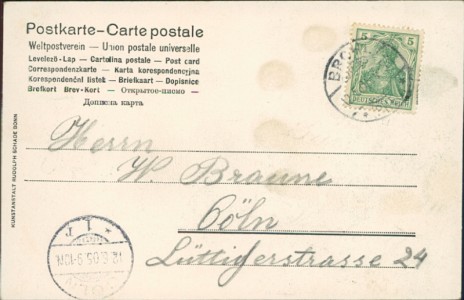 Postkarte – Carte postale
Weltpostverein — Union postale universelle
Levelező-Lap — Cartolina postale — Post card
Correspondenzkarte — Karta korespondencyjna
Korespondenční lístek — Briefkaart — Dopisnice
Brefkort Brev-Kort — Открытое-письмо —
Дописна карта
5 5
DEUTSCHES REICH
Herrn
W. Braune
Cöln
Lüttigerstrasse 24
KUNSTANSTALT RUDOLPH SCHADE BONN
* 1 *
12.6.05. 9-10